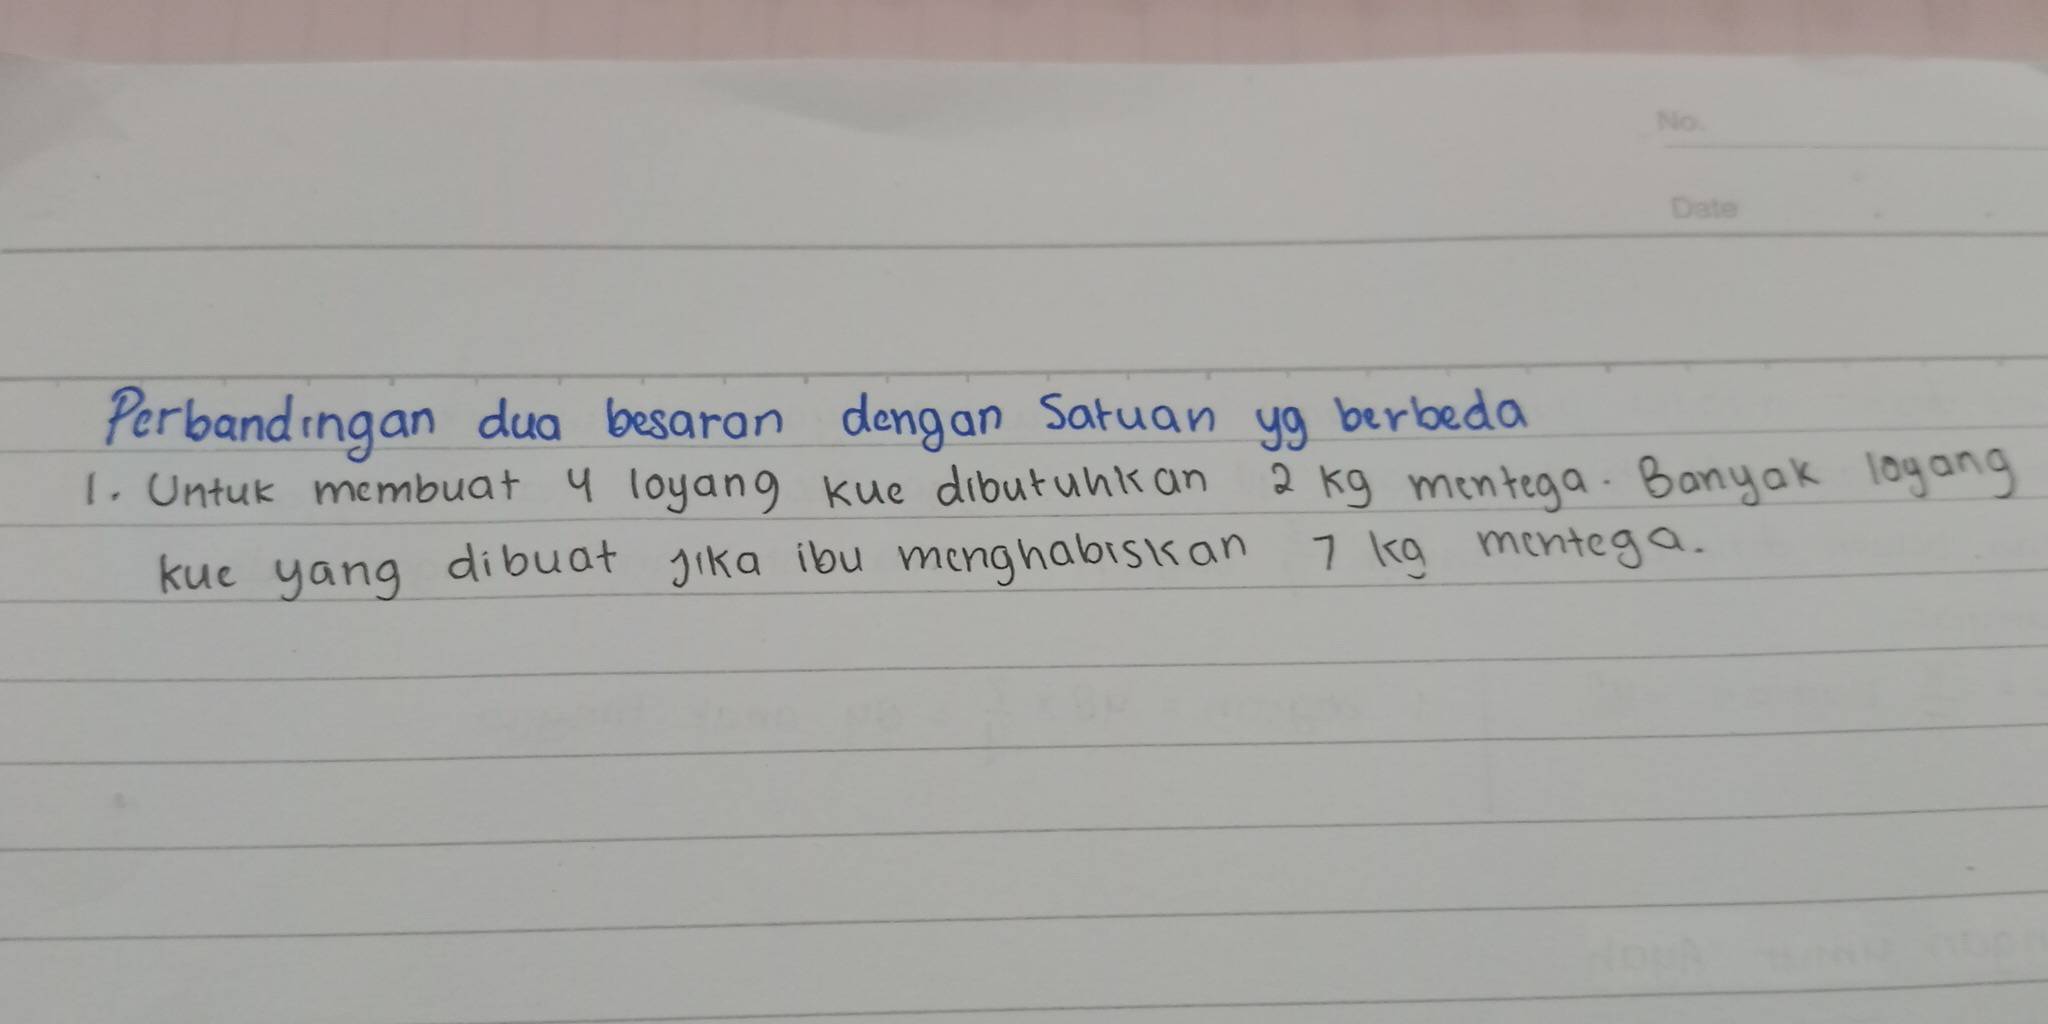 No.
Date
Perbandingan dua besaran dengan Satuan yg berbeda
1. Untuk membuat 4 loyang kue dibutuhkan 2 kg mentega. Banyak loyang
kue yang dibuat jika ibu menghabiskan 7 kg mentega.